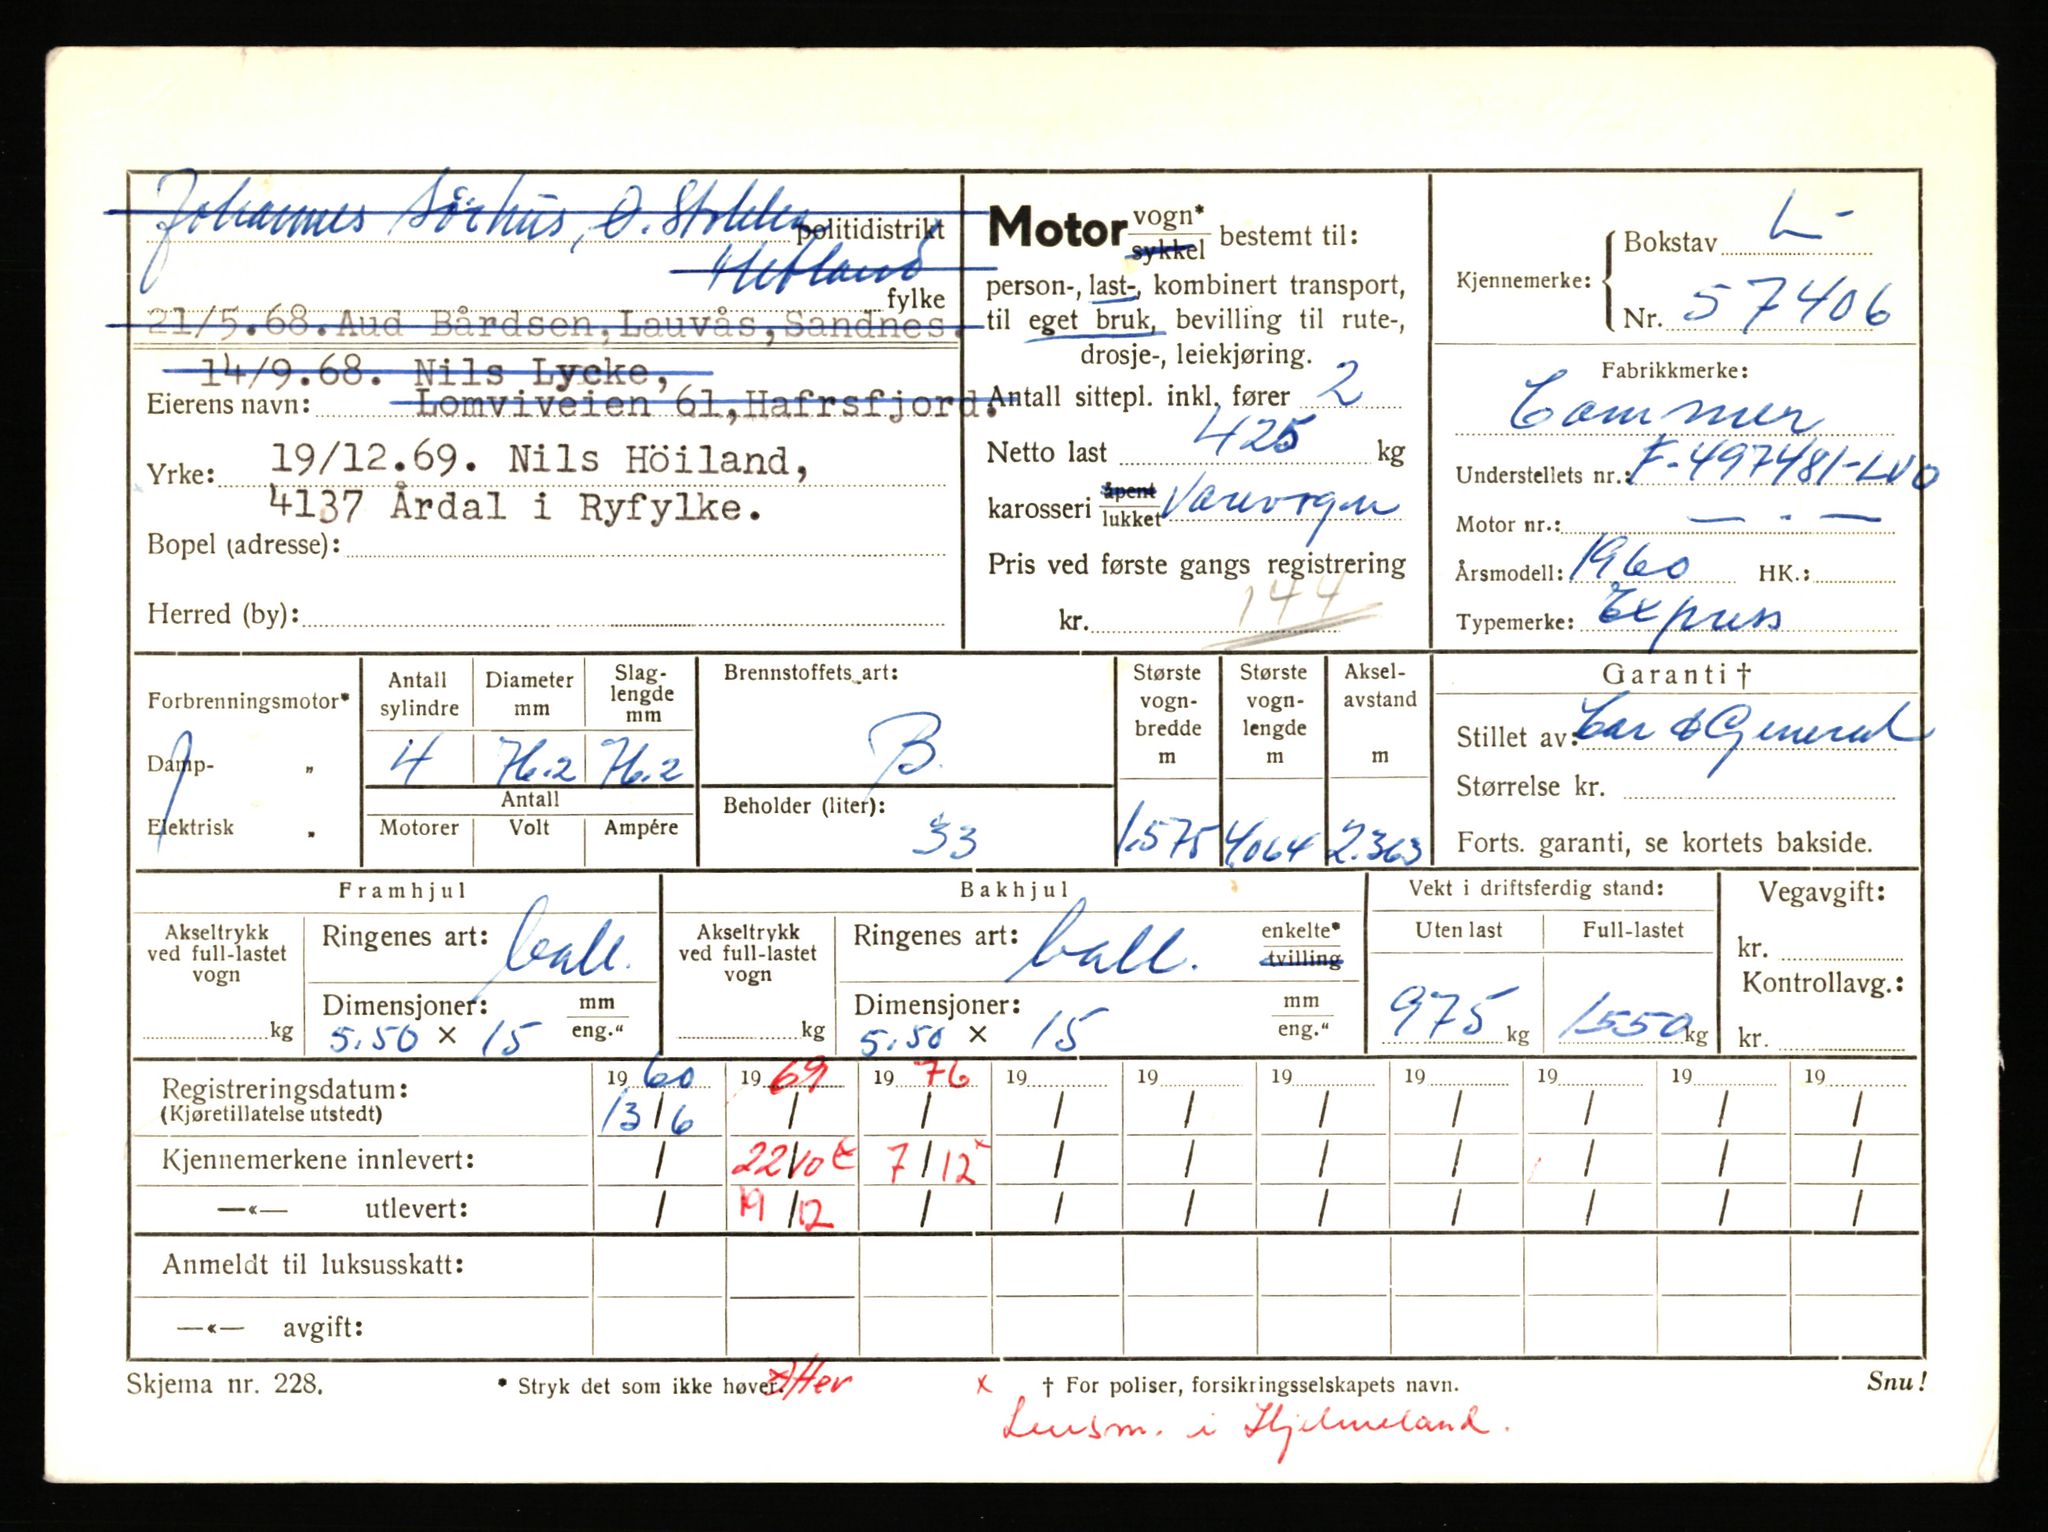 Johannes Sörhus, Ø. Stokka politidistrikt
Hetland
fylke
21/5.68. Aud Bårdsen, Lauvås, Sandnes.
14/9.68. Nils Lycke,
Eierens navn: Lomviveien 61, Hafrsfjord.
19/12.69. Nils Höiland,
Yrke:
4137 Årdal i Ryfylke.
Bopel (adresse):
Herred (by):
Motor vogn* sykkel bestemt til:
person-, last-, kombinert transport,
til eget bruk, bevilling til rute-,
drosje-, leiekjøring.
Antall sittepl. inkl. fører 2
Netto last 425 kg
karosseri åpent lukket Varevogn
Pris ved første gangs registrering
kr. 144
Kjennemerke: Bokstav L-
Nr. 57406
Fabrikkmerke:
Commer
Understellets nr.: F-497481-LVO
Motor nr.: — . —
Årsmodell: 1960 HK.:
Typemerke: Express
Forbrenningsmotor*
Damp- „
Elektrisk „
Antall sylindre 4
Diameter mm 76.2
Slaglengde mm 76.2
Antall
Motorer Volt Ampére
Brennstoffets art:
B.
Beholder (liter):
33
Største vogn-bredde m 1.575
Største vogn-lengde m 4.064
Aksel-avstand m 2.363
Garanti †
Stillet av: Car & General
Størrelse kr.
Forts. garanti, se kortets bakside.
Framhjul
Akseltrykk ved full-lastet vogn kg
Ringenes art: ball.
Dimensjoner: mm eng."
5.50 × 15
Bakhjul
Akseltrykk ved full-lastet vogn kg
Ringenes art: ball. enkelte* tvilling
Dimensjoner: mm eng."
5.50 × 15
Vekt i driftsferdig stand:
Uten last Full-lastet
975 kg 1550 kg
Vegavgift:
kr.
Kontrollavg.:
kr.
Registreringsdatum: 19 60 19 69 19 76 19 19 19 19 19 19 19
(Kjøretillatelse utstedt) 13/6 / / / / / / / / /
Kjennemerkene innlevert: / 22/10 x 7/12 x / / / / / / /
—«— utlevert: / 19/12 / / / / / / / /
Anmeldt til luksusskatt:
—«— avgift:
Skjema nr. 228. * Stryk det som ikke høver. x † For poliser, forsikringsselskapets navn. Snu!
Lensm. i Hjelmeland.